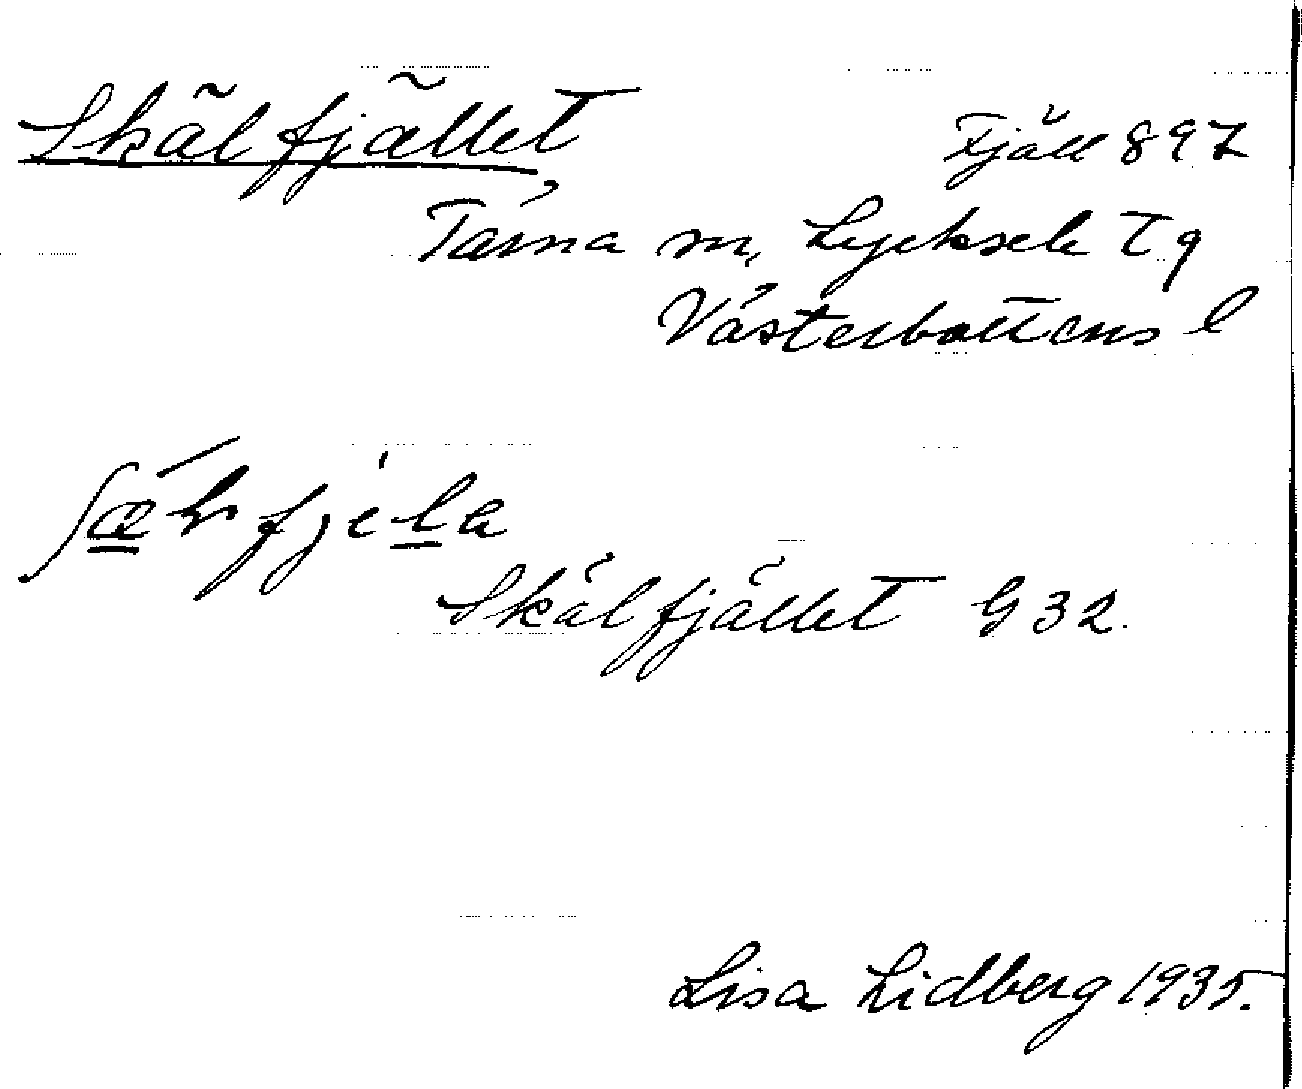 Skälfjället
Fjäll 897
Tärna sn, Lycksele tg
Västerbottens l
Skälfjället G 32.
Lisa Lidberg 1935.